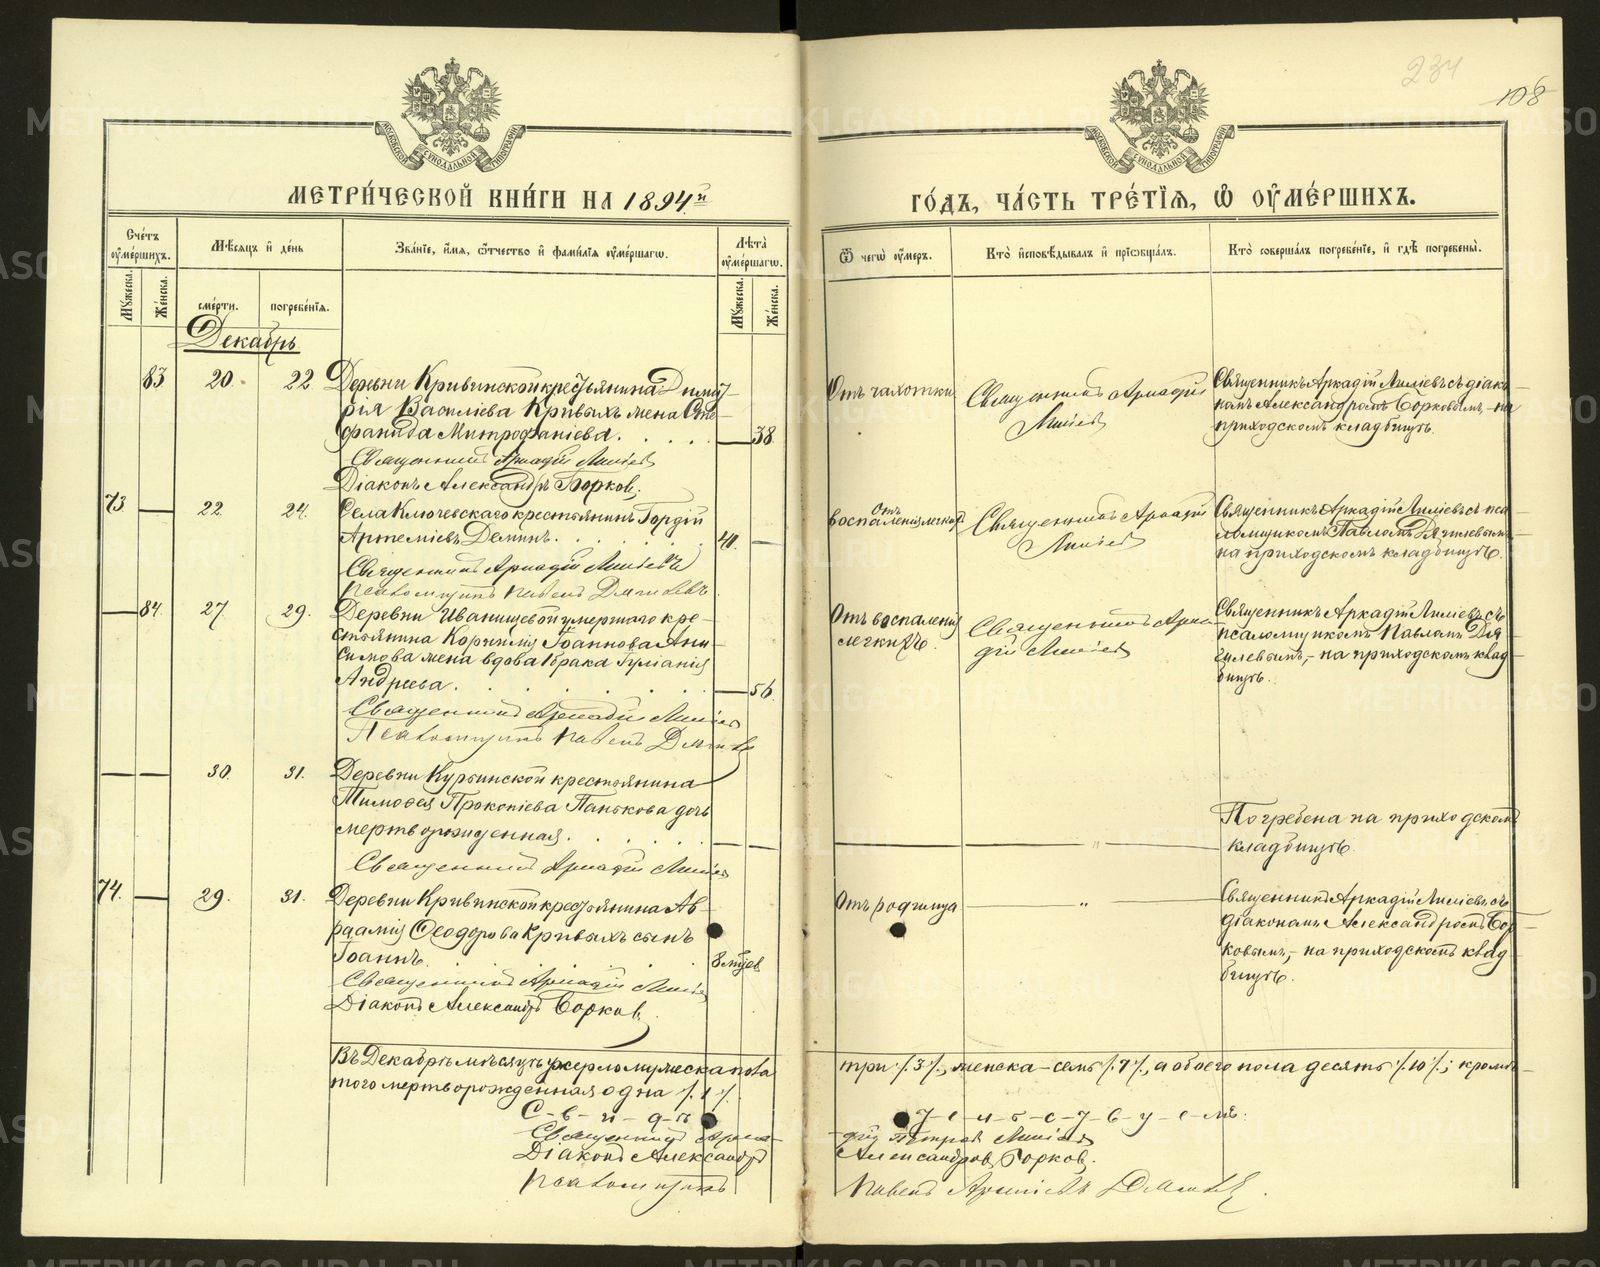 234
108
МОСКОВСКОЙ СѴНОДАЛЬНОЙ ТИПОГРАФІИ
МОСКОВСКОЙ СѴНОДАЛЬНОЙ ТИПОГРАФІИ
МЕТРИ́ЧЕСКОЙ КНИ́ГИ НА 1894й
ГО́ДЪ, ЧА́СТЬ ТРЕ́ТІѦ, Ѽ ОУ҆МЕ́РШИХЪ.
Сче́тъ оу҆ме́ршихъ.
Мѣ́сяцъ и҆ де́нь
Зва́нїе, и҆́мя, ѻ҆́тчество и҆ фами́лїя оу҆ме́ршагѡ.
Лѣ́та оу҆ме́ршагѡ.
Ѿ чегѡ̀ оу҆́меръ.
Кто̀ и҆сповѣ́дывалъ и҆ прїѡбща́лъ.
Кто̀ соверша́лъ погребе́нїе, и҆ гдѣ̀ погребены̀.
Мꙋ́жеска.
Же́нска.
сме́рти.
погребе́нїя.
Мꙋ́жеска.
Же́нска.
Декабрь
83 20. 22 Деревни Кривинской крестьянина Димит-
рія Василіева Кривыхъ жена Сте-
фанида Митрофаніева. 38.
Священникъ Аркадій Лиліевъ
Діаконъ Александръ Борков.
Отъ чахотки
Священникъ Аркадій
Лиліевъ
Священникъ Аркадій Лиліевъ съ діако-
номъ Александромъ Борковымъ, на
приходскомъ кладбищѣ.
73. 22. 24. Села Ключевскаго крестьянинъ Гордій
Артеміевъ Деминъ.
Священникъ Аркадій Лиліевъ
Псаломщикъ Павелъ Дягилевъ
Отъ
воспаленія легкихъ
Священникъ Аркадій
Лиліевъ
Священникъ Аркадій Лиліевъ съ пса-
ломщикомъ Павломъ Дягилевымъ
на приходскомъ кладбищѣ.
84. 27 29. Деревни Иванищевой умершаго кре-
стьянина Корнилія Іоаннова Ани-
симова жена вдова брака Іуліанія
Андреева. 56.
Священникъ Аркадій Лиліевъ
Псаломщикъ Павелъ Дягилевъ
Отъ воспаленія
легкихъ.
Священникъ Арка-
дій Лиліевъ
Священникъ Аркадій Лиліевъ съ
псаломщикомъ Павломъ Дя-
гилевымъ, на приходскомъ клад-
бищѣ.
30. 31. Деревни Курьинской крестьянина
Тимоѳея Прокопіева Панькова дочь
мертворожденная.
Священникъ Аркадій Лиліевъ
Погребена на приходскомъ
кладбищѣ.
74. 29. 31. Деревни Кривинской крестьянина Ав-
раамія Ѳеодорова Кривыхъ сынъ
Іоаннъ. 8 мѣсев
Священникъ Аркадій Лиліевъ
Діаконъ Александръ Борков.
Отъ родимца
Священникъ Аркадій Лиліевъ съ
діакономъ Александромъ Бор-
ковымъ, на приходскомъ клад-
бищѣ.
Въ Декабрѣ мѣсяцѣ умерло мужеска пола
три /.3/., женска - семь /.7/., а обоего пола десять /.10/.; кромѣ
того мертворожденная одна /.1/.
С-в-и-д-ѣ-т-е-л-ь-с-т-в-у-е-мъ:
Священникъ Арка-
дій Петровъ Лиліевъ
Діаконъ Александръ
Александров Борков.
Псаломщикъ
Павелъ Дягилевъ
METRIKI.GASO-URAL.RU